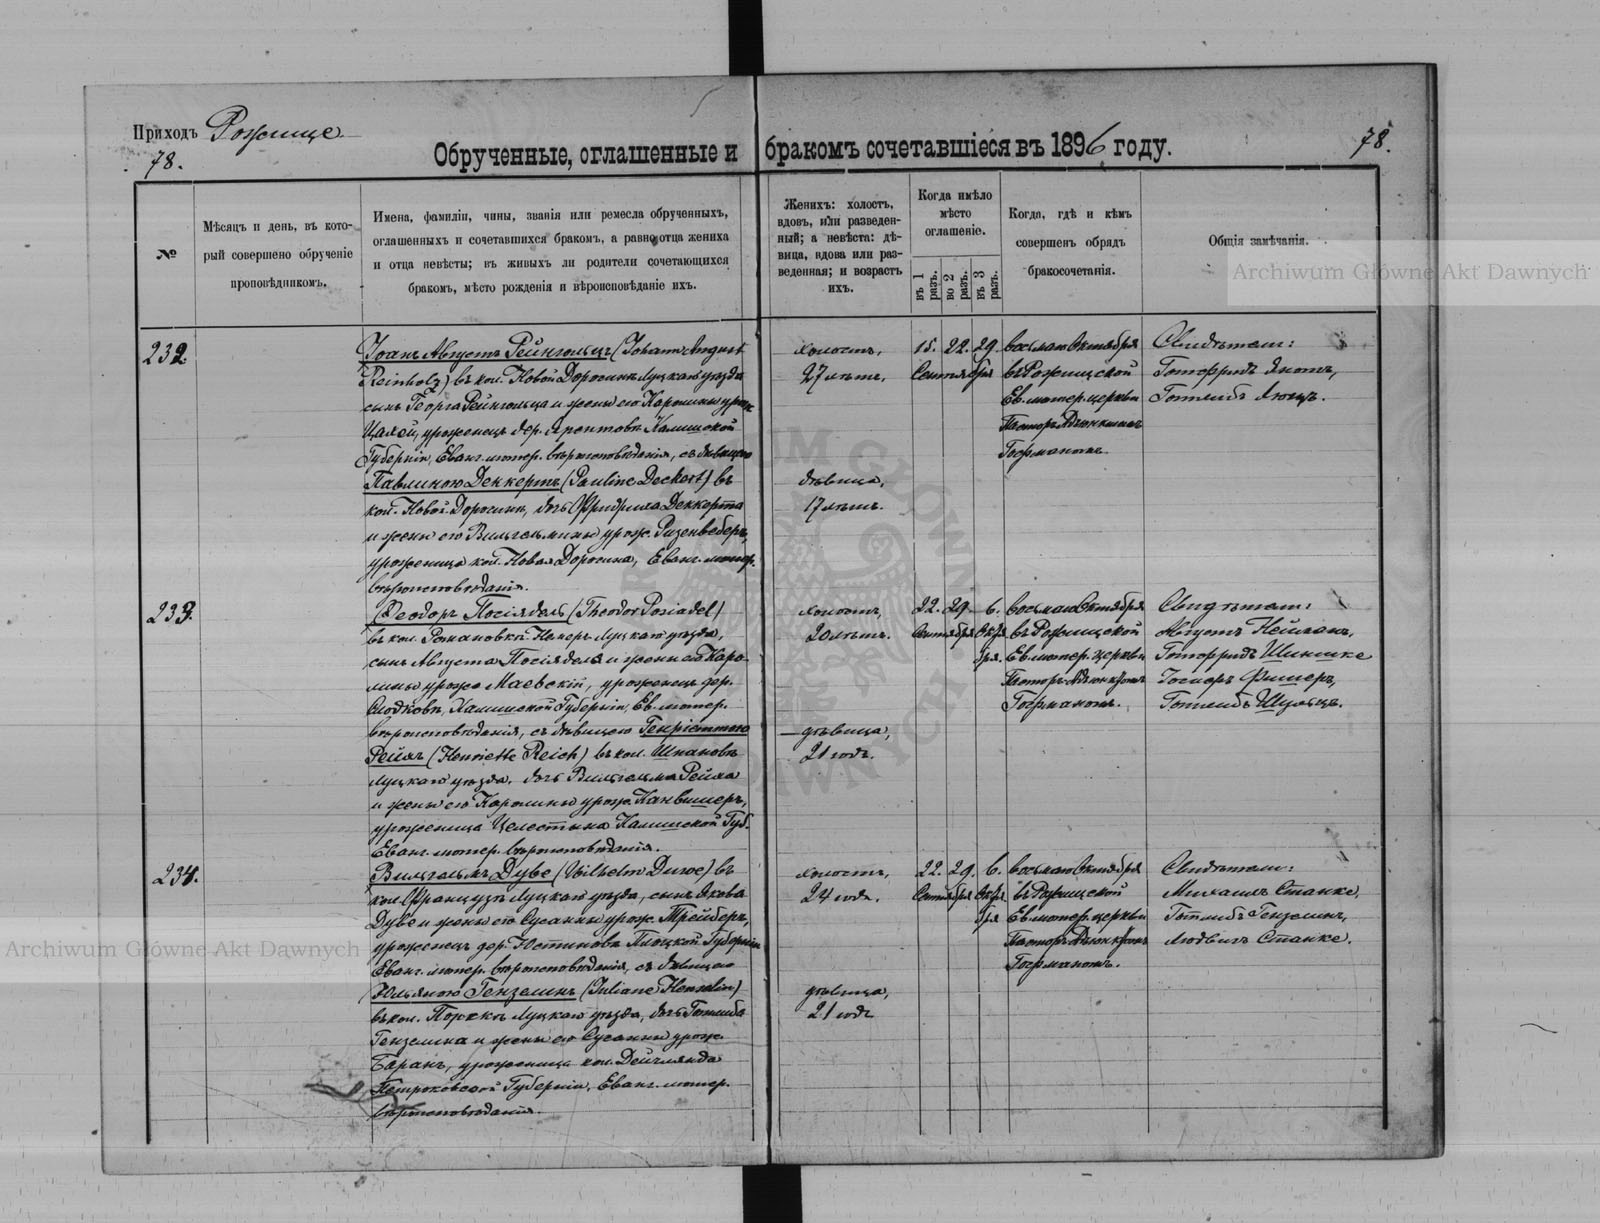 Приходъ Рожище
78.
78.
Обрученные, оглашенные и бракомъ сочетавшіеся въ 1896 году.
№
Мѣсяцъ и день, въ кото-
рый совершено обрученіе
проповѣдникомъ.
Имена, фамиліи, чины, званія или ремесла обрученныхъ,
оглашенныхъ и сочетавшихся бракомъ, а равно отца жениха
и отца невѣсты; въ живыхъ ли родители сочетающихся
бракомъ, мѣсто рожденія и вѣроисповѣданіе ихъ.
Женихъ: холостъ,
вдовъ, или разведен-
ный; а невѣста: дѣ-
вица, вдова или раз-
веденная; и возрастъ
ихъ.
Когда имѣло
мѣсто
оглашеніе.
въ 1 разъ.
во 2 разъ.
въ 3 разъ.
Когда, гдѣ и кѣмъ
совершенъ обрядъ
бракосочетанія.
Общія замѣчанія.
Archiwum Główne Akt Dawnych
232.
Іоанъ Августъ Рейнгольцъ (Johann August
Reinholz) въ кол. Новой Доросинѣ Луцкаго уѣзда
сынъ Георга Рейнгольца и жены его Каролины урож.
уроженецъ дер. Калишской
Губерніи, Еванг. лютер. вѣроисповѣданія, съ дѣвицею
Павлиною Деккертъ (Pauline Deckert) въ
кол. Новой Доросинѣ, дочь Фридриха Деккерта
и жены его Вильгельмины урож. Ризенвеберъ,
уроженица кол. Новая Доросина, Еванг. лютер.
вѣроисповѣданія.
холостъ,
27 лѣтъ.
дѣвица,
17 лѣтъ.
15. 22. 29.
Сентября
Восьмаго Октября
въ Рожищской
Ев. лютер. церкви
Пасторъ Адъюнктомъ
Госманомъ
Свидѣтели:
Готфридъ
Готлибъ
233.
Ѳеодоръ Посіядель (Theodor Posiadel)
въ кол. Романовкѣ Луцкаго уѣзда,
сынъ Августа Посіяделя и жены его Каро-
лины урож. Маевскій, уроженецъ дер.
Калишской Губерніи, Ев. лютер.
вѣроисповѣданія, съ дѣвицею Генріеттою
Рейхъ (Henriette Reich) въ кол. Шпановѣ
Луцкаго уѣзда, дочь Вильгельма Рейха
и жены его Каролины урож.
уроженица Целестына Калишской Губ.
Еванг. лютер. вѣроисповѣданія.
холостъ,
20 лѣтъ.
дѣвица,
21 годъ.
22. 29. 6.
Сентября Октя-
бря.
Восьмаго Октября
въ Рожищской
Ев. лютер. церкви
Пасторъ Адъюнктомъ
Госманомъ.
Свидѣтели:
Августъ Нейманъ,
Готфридъ Шиншке
Фишеръ,
Готлибъ Шульцъ.
234.
Вильгельмъ Дуве (Wilhelm Duwe) въ
кол. Французѣ Луцкаго уѣзда, сынъ Якова
Дуве и жены его Сусанны урож. Трейберъ,
уроженецъ дер. Юстиновѣ Плоцкой Губерніи
Еванг. лютер. вѣроисповѣданія, съ дѣвицею
Юльяною Гензелинъ (Juliane Henselin)
въ кол. Луцкаго уѣзда, дочь Готлиба
Гензелина и жены его Сусанны урож.
Баранъ, уроженица кол. Дейчлянда
Петроковской Губерніи, Еванг. лютер.
вѣроисповѣданія.
холостъ,
24 года.
дѣвица,
21 годъ
22. 29. 6.
Сентября Октя
бря
Восьмаго Октября
въ Рожищской
Ев. лютер. церкви
Пасторъ Адъюнктомъ
Госманомъ.
Свидѣтели:
Михаилъ Станке,
Готлибъ Гензелинъ,
Людвигъ Станке.
Archiwum Główne Akt Dawnych